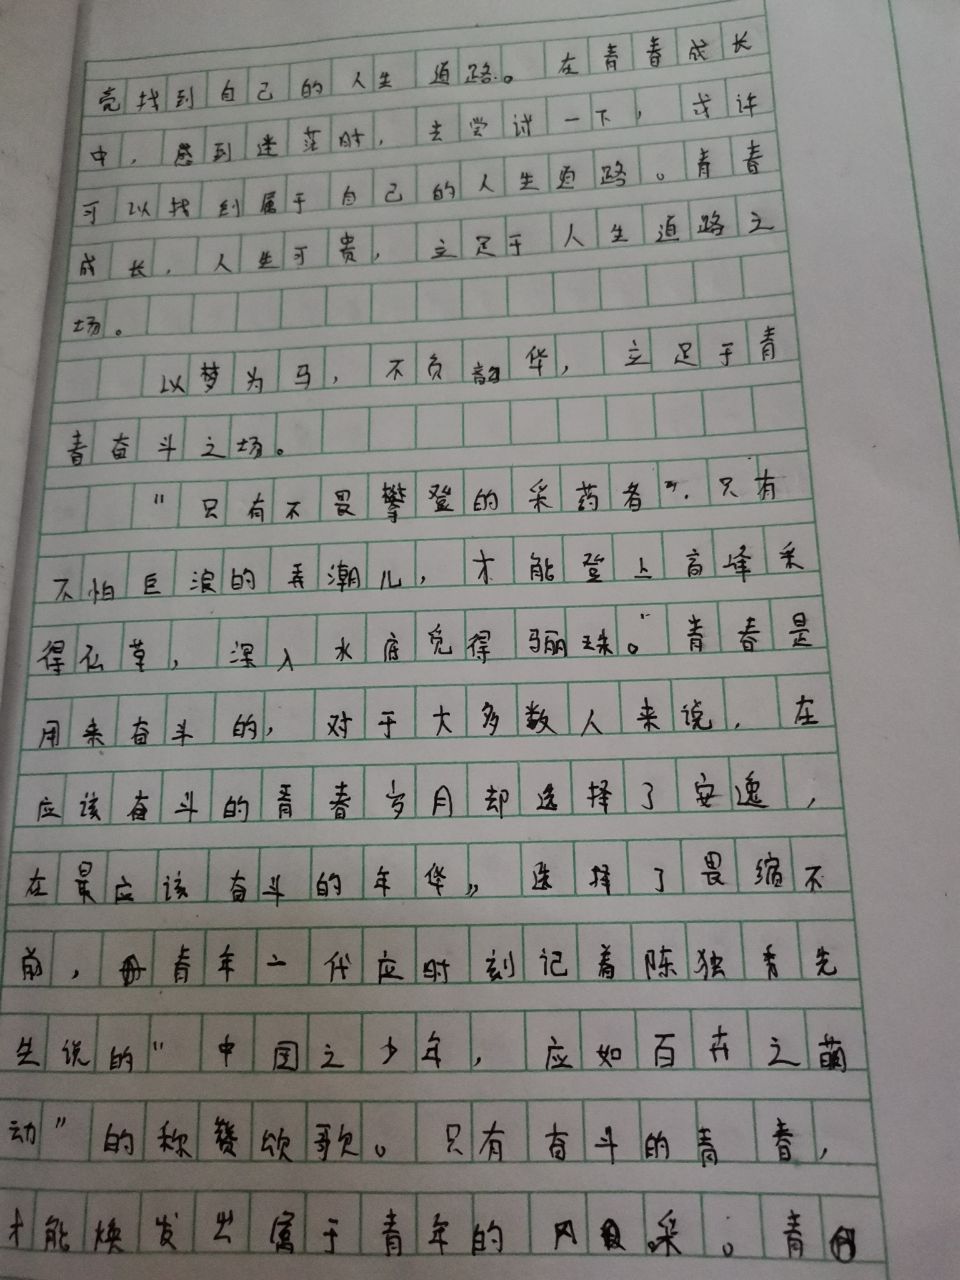 竞找到自己的人生道路。在青春成长
中，感到迷茫时，去尝试一下，或许
可以找到属于自己的人生道路。青春
成长，人生可贵，立足于人生道路之
场。
以梦为马，不负韶华，立足于青
春奋斗之场。
“只有不畏攀登的采药者”，只有
不怕巨浪的弄潮儿，才能登上高峰采
得仙草，深入水底觅得骊珠。”青春是
用来奋斗的，对于大多数人来说，在
应该奋斗的青春岁月却选择了安逸，
在最应该奋斗的年华，选择了畏缩不
前，青年一代应时刻记着陈独秀先
生说的“中国之少年，应如百卉之萌
动”的称赞颂歌。只有奋斗的青春，
才能焕发出属于青年的风采。青